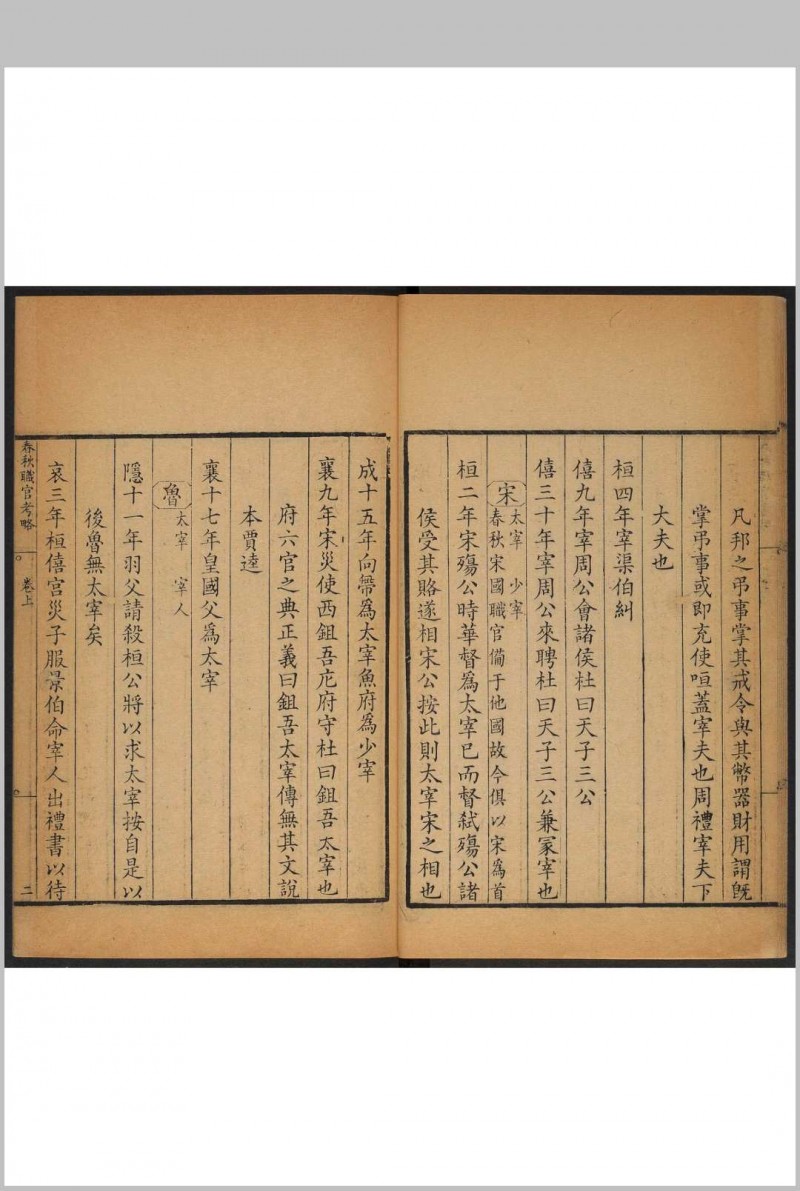 凡邦之弔事掌其戒令與其幣器財用謂旣
掌弔事或即充使咺蓋宰夫也周禮宰夫下
大夫也
桓四年宰渠伯糾
僖九年宰周公會諸侯杜曰天子三公
僖三十年宰周公來聘杜曰天子三公兼冢宰也
宋 太宰 少宰
春秋宋國職官備于他國故今俱以宋為首
桓二年宋殤公時華督為太宰已而督弒殤公諸
侯受其賂遂相宋公按此則太宰宋之相也
成十五年向帶為太宰魚府為少宰
襄九年宋災使西鉏吾庀府守杜曰鉏吾太宰也
府六官之典正義曰鉏吾太宰傳無其文說
本賈逵
襄十七年皇國父為太宰
魯 太宰 宰人
隱十一年羽父請殺桓公將以求太宰按自是以
後魯無太宰矣
哀三年桓僖宮災子服景伯命宰人出禮書以待
春秋職官考略 卷上 二